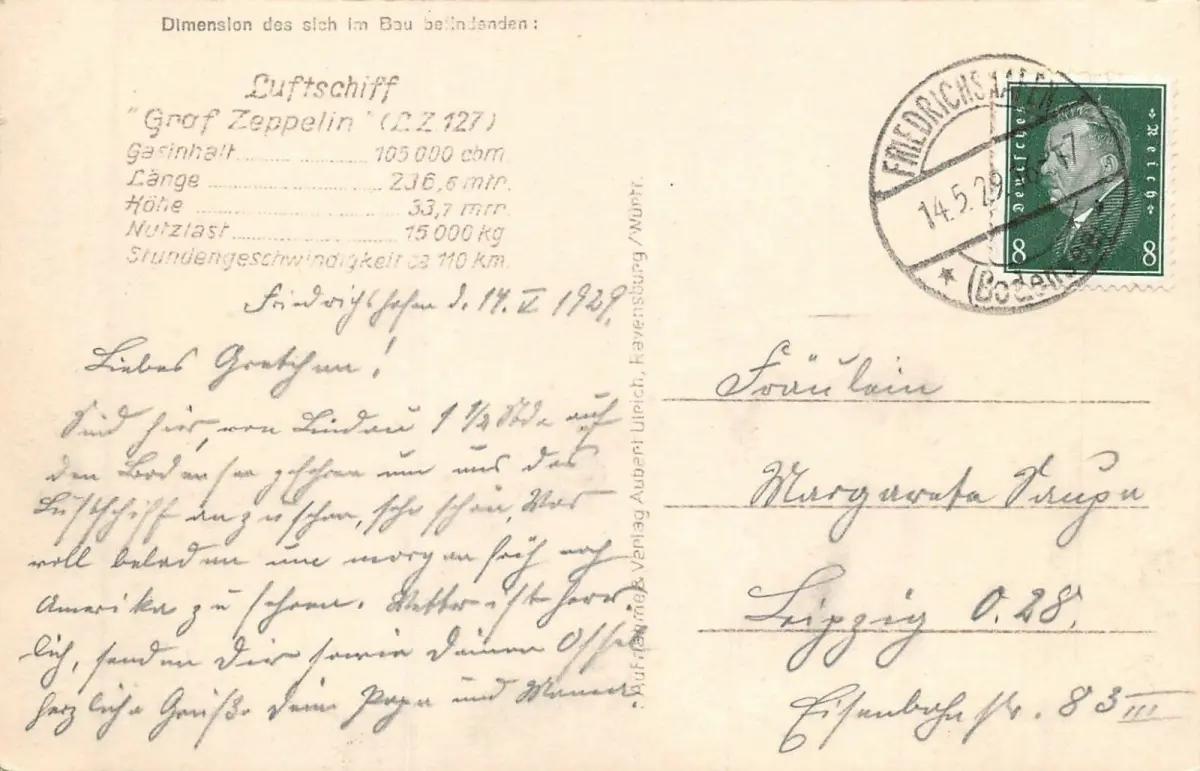 Dimension des sich im Bau befindenden:
Luftschiff
"Graf Zeppelin" (LZ 127)
Gasinhalt ........ 105 000 cbm.
Länge ........ 236,6 mtr.
Höhe ........ 33,7 mtr.
Nutzlast ........ 15 000 kg
Stundengeschwindigkeit ca 110 km.
Friedrichshafen d. 14. V 1929.
Liebes Gretchen!
Sind hier, von Lindau 1 1/4 Stde auf
den Bodensee gefahren um uns das
Luftschiff anzusehen, sehr schön. Was
voll beladen um morgen früh nach
Amerika zu fahren. Wetter ist herr-
lich, senden Dir sowie Deinen
herzliche Grüße Dein Papa und Mama.
Aufnahme & Verlag Aubert Ulrich, Ravensburg / Württ.
FRIEDRICHSHAFEN
14.5.29. 16-17
(Bodensee)
Deutsches Reich
8 8
Fräulein
Margarete Saupe
Leipzig O. 28.
Eisenbahnstr. 83 III